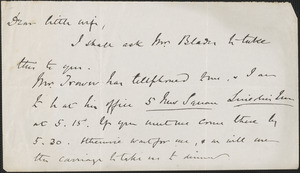 Dear little wife,
I shall ask Mr Blades to take
this to you.
Mr Trower has telephoned me & I am
to be at his office 5 New Square Lincoln's Inn
at 5.15. If you meet me come there by
5.30. Otherwise wait for me, & we will use
the carriage to take us to dinner